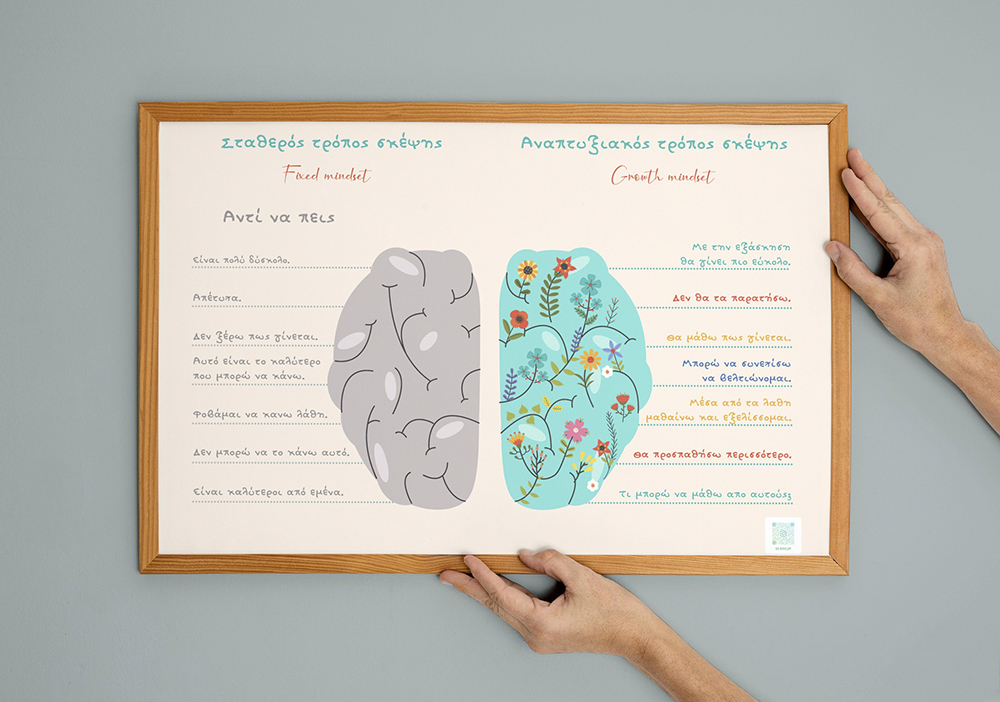 Σταθερός τρόπος σκέψης
Fixed mindset
Αντί να πεις
Είναι πολύ δύσκολο.
Απέτυπα.
Δεν ξέρω πως γίνεται.
Αυτό είναι το καλύτερο
που μπορώ να κάνω.
Φοβάμαι να κανω λάθη.
Δεν μπορώ να το κάνω αυτό.
Είναι καλύτεροι από εμένα.
Αναπτυξιακός τρόπος σκέψης
Growth mindset
Με την εξάσκηση
θα γίνει πιο εύκολο.
Δεν θα τα παρατήσω.
Θα μάθω πως γίνεται.
Μπορώ να συνεπίσω
να βελτιώνομαι.
Μέσα από τα λαθη
μαθαίνω και εξελίσσομαι.
Θα προσπαθήσω περισσότερο.
Τι μπορώ να μάθω απο αυτούς;